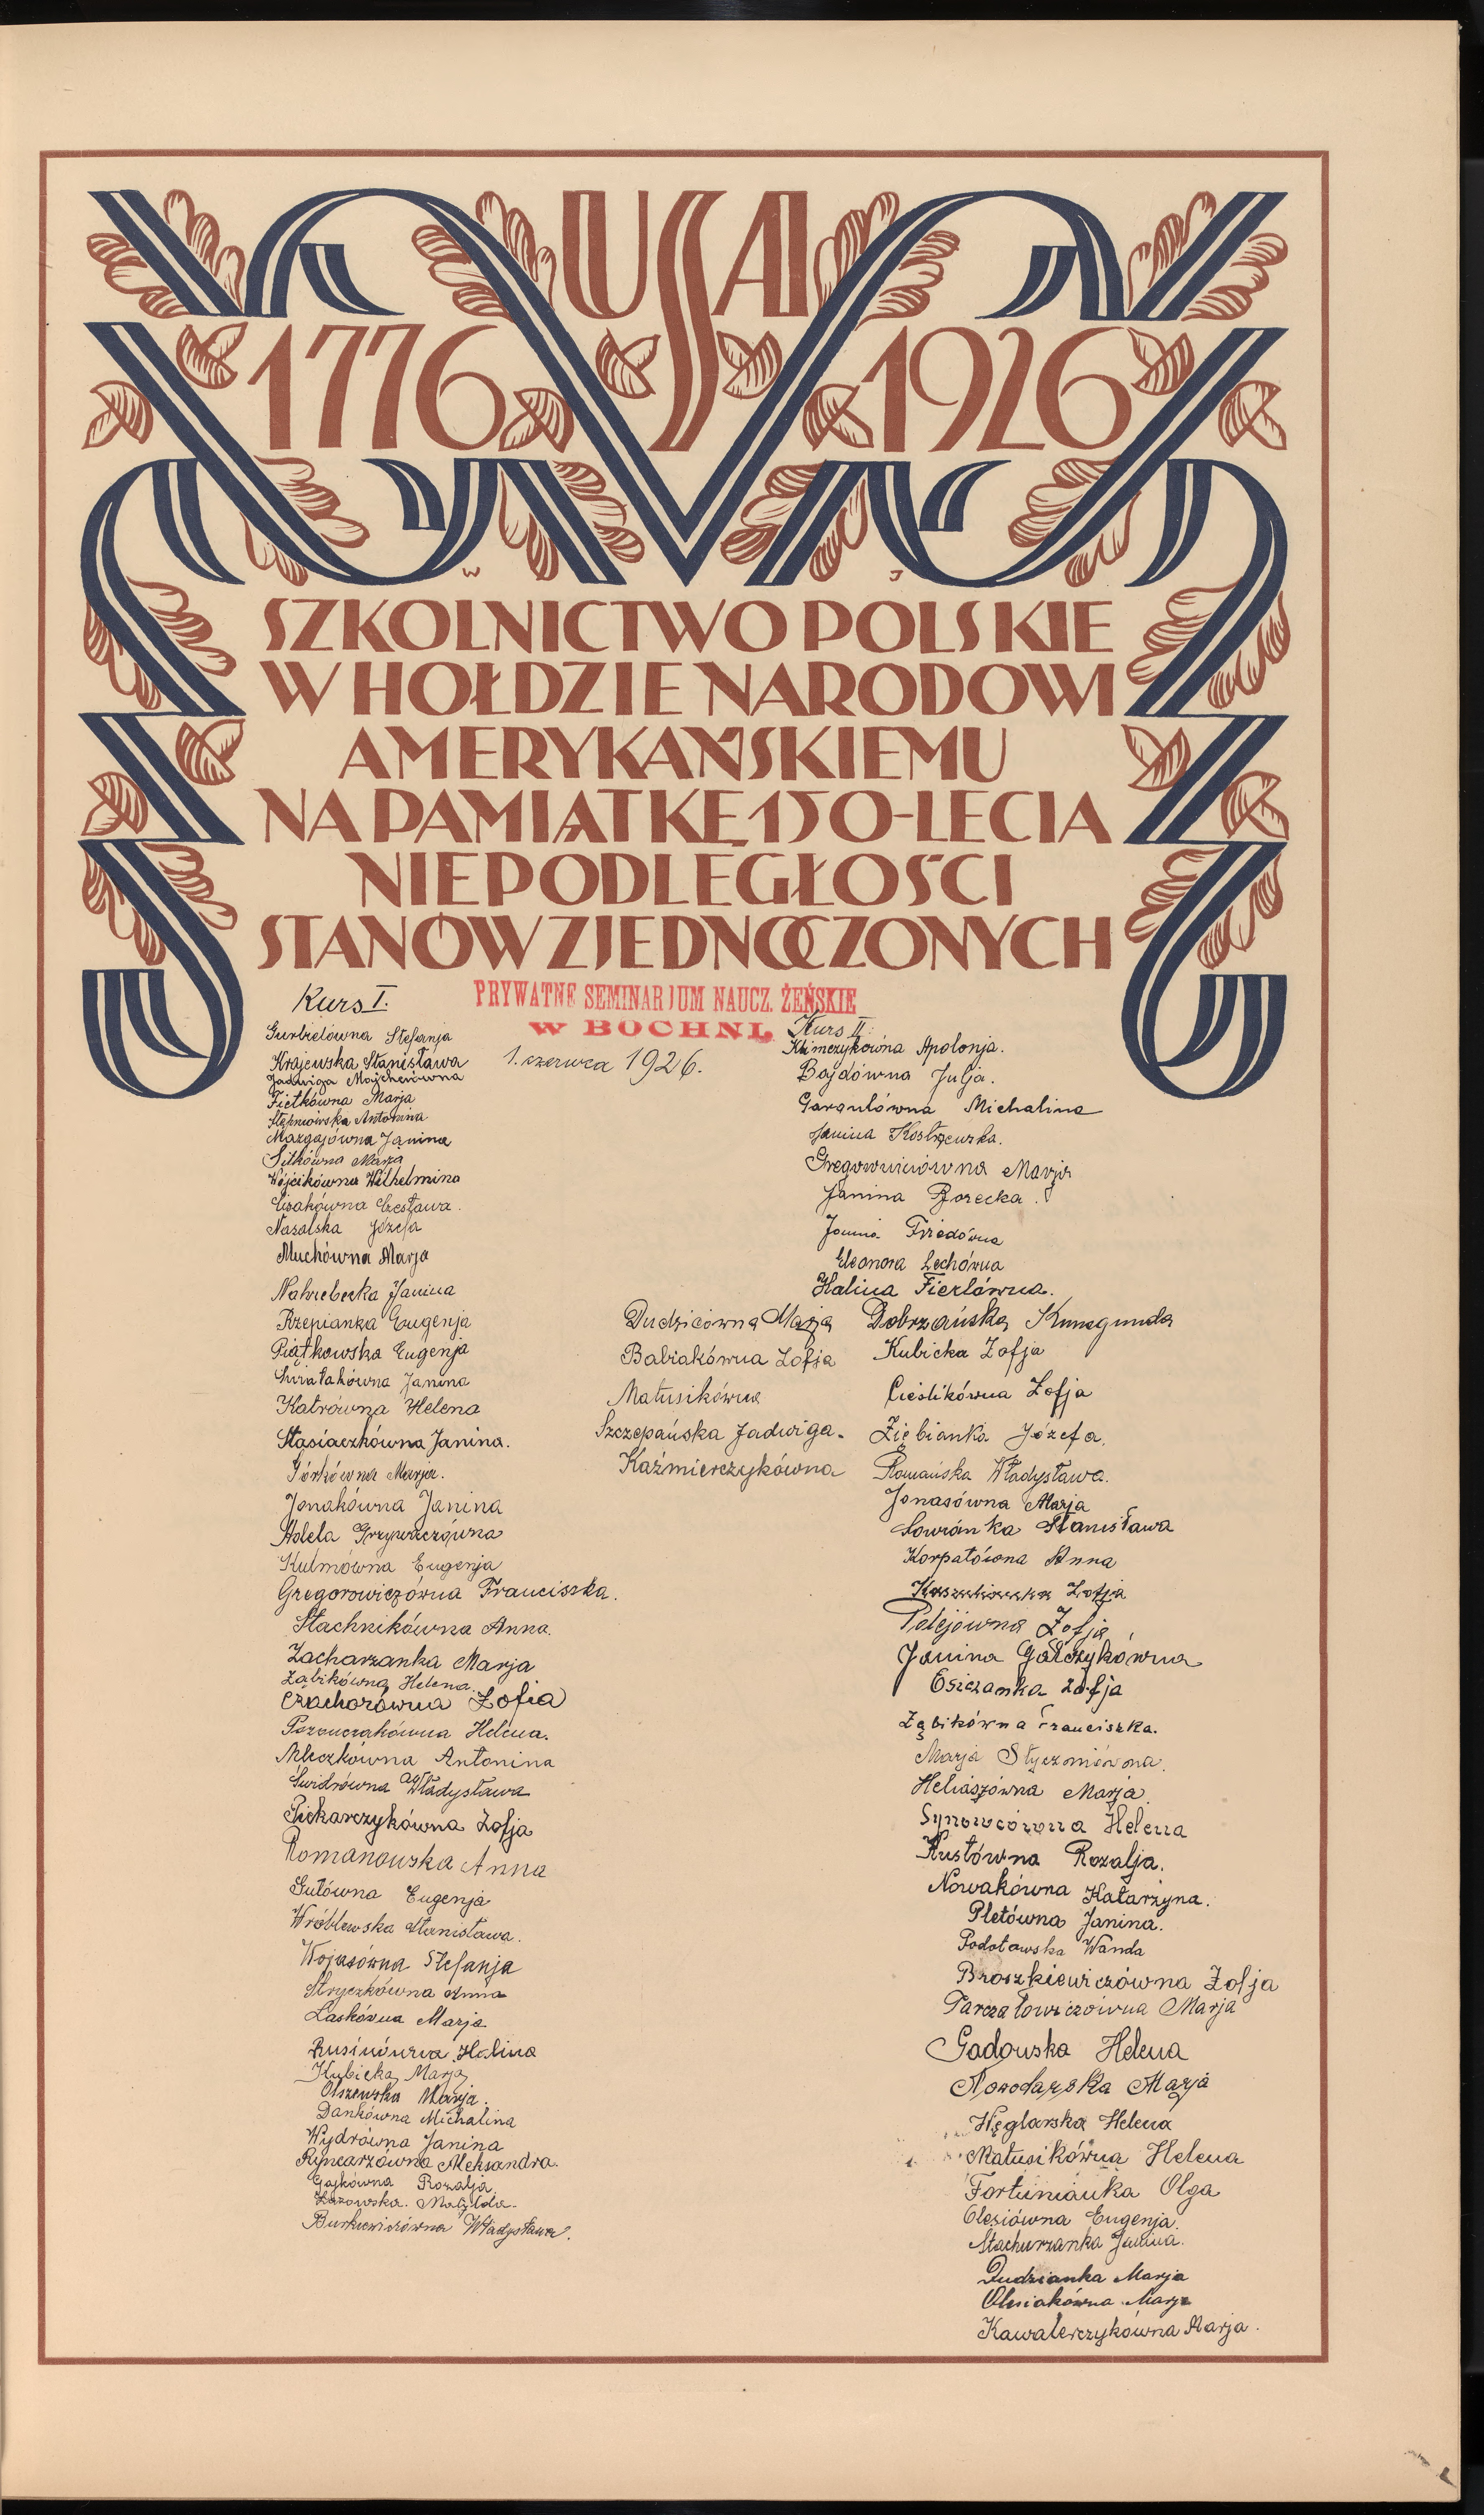 USA
1776 1926
W J
SZKOLNICTWO POLSKIE
W HOŁDZIE NARODOWI
AMERYKAŃSKIEMU
NA PAMIĄTKĘ 150-LECIA
NIEPODLEGŁOŚCI
STANÓW ZJEDNOCZONYCH
PRYWATNE SEMINARJUM NAUCZ. ŻEŃSKIE
W BOCHNI.
1. czerwca 1926.
Kurs I.
Gurbielówna Stefanja
Krajewska Stanisława
Jadwiga Majcherówna
Fietkówna Marja
Stępniowska Antonina
Mazgajówna Janina
Sitkówna Marja
Wójcikówna Wilhelmina
Cisakówna Czesława.
Nasalska Józefa
Muchówna Marja
Nahrebecka Janina
Rzepianka Eugenja
Piątkowska Eugenja
Świątakówna Janina
Katrówna Helena
Stasiaczkówna Janina.
Górkówna Marja.
Jonakówna Janina
Adela Grzywaczówna
Kulmówna Eugenja
Gregorowiczówna Franciszka.
Stachnikówna Anna.
Zacharzanka Marja
Ząbikówna Helena.
Czachorówna Zofia
Helena.
Mleczkówna Antonina
Świdrówna Władysława
Piekarczykówna Zofja
Romanowska Anna
Gutówna Eugenja
Wróblewska Stanisława.
Wojasówna Stefanja
Stryczkówna Anna
Laskówna Marja
Rusinówna Halina
Kubicka Marja
Olszewska Marja.
Dankówna Michalina
Wydrówna Janina
Ryncarzówna Aleksandra.
Gajkówna Rozalja.
Łazowska. Matylda.
Burkiewiczówna Władysława.
Dudzicówna Marja
Babiakówna Zofja
Matusikówna
Szczepańska Jadwiga.
Kaźmierczykówna
Kurs II.
Klimczykówna Apolonja.
Bajdówna Julja.
Gargulówna Michalina
Janina Kostrzewska.
Gregorowiczówna Marja
Janina Borecka.
Janina Friedówna
Eleonora Lechówna
Halina Fierlówna.
Dobrzańska Kunegunda
Kubicka Zofja
Cieślikówna Zofja
Ziębianka Józefa.
Romańska Władysława.
Jonasówna Marja
Sowianka Stanisława
Korpałówna Anna
Zofja
Palejówna Zofja
Janina Gałczykówna
Osiczanka Zofja
Ząbikówna Franciszka.
Marja Styczniówna.
Heliaszówna Marja.
Synowcówna Helena
Kustówna Rozalja.
Nowakówna Katarzyna.
Pletówna Janina.
Podołowska Wanda
Broszkiewiczówna Zofja
Tarczałowiczówna Marja
Gadowska Helena
Nowodarska Marja
Węglarska Helena
Matusikówna Helena
Fortunianka Olga
Olesiówna Eugenja.
Stachurzanka Janina.
Dudzianka Marja
Olesiakówna Marja
Kawalerczykówna Marja.